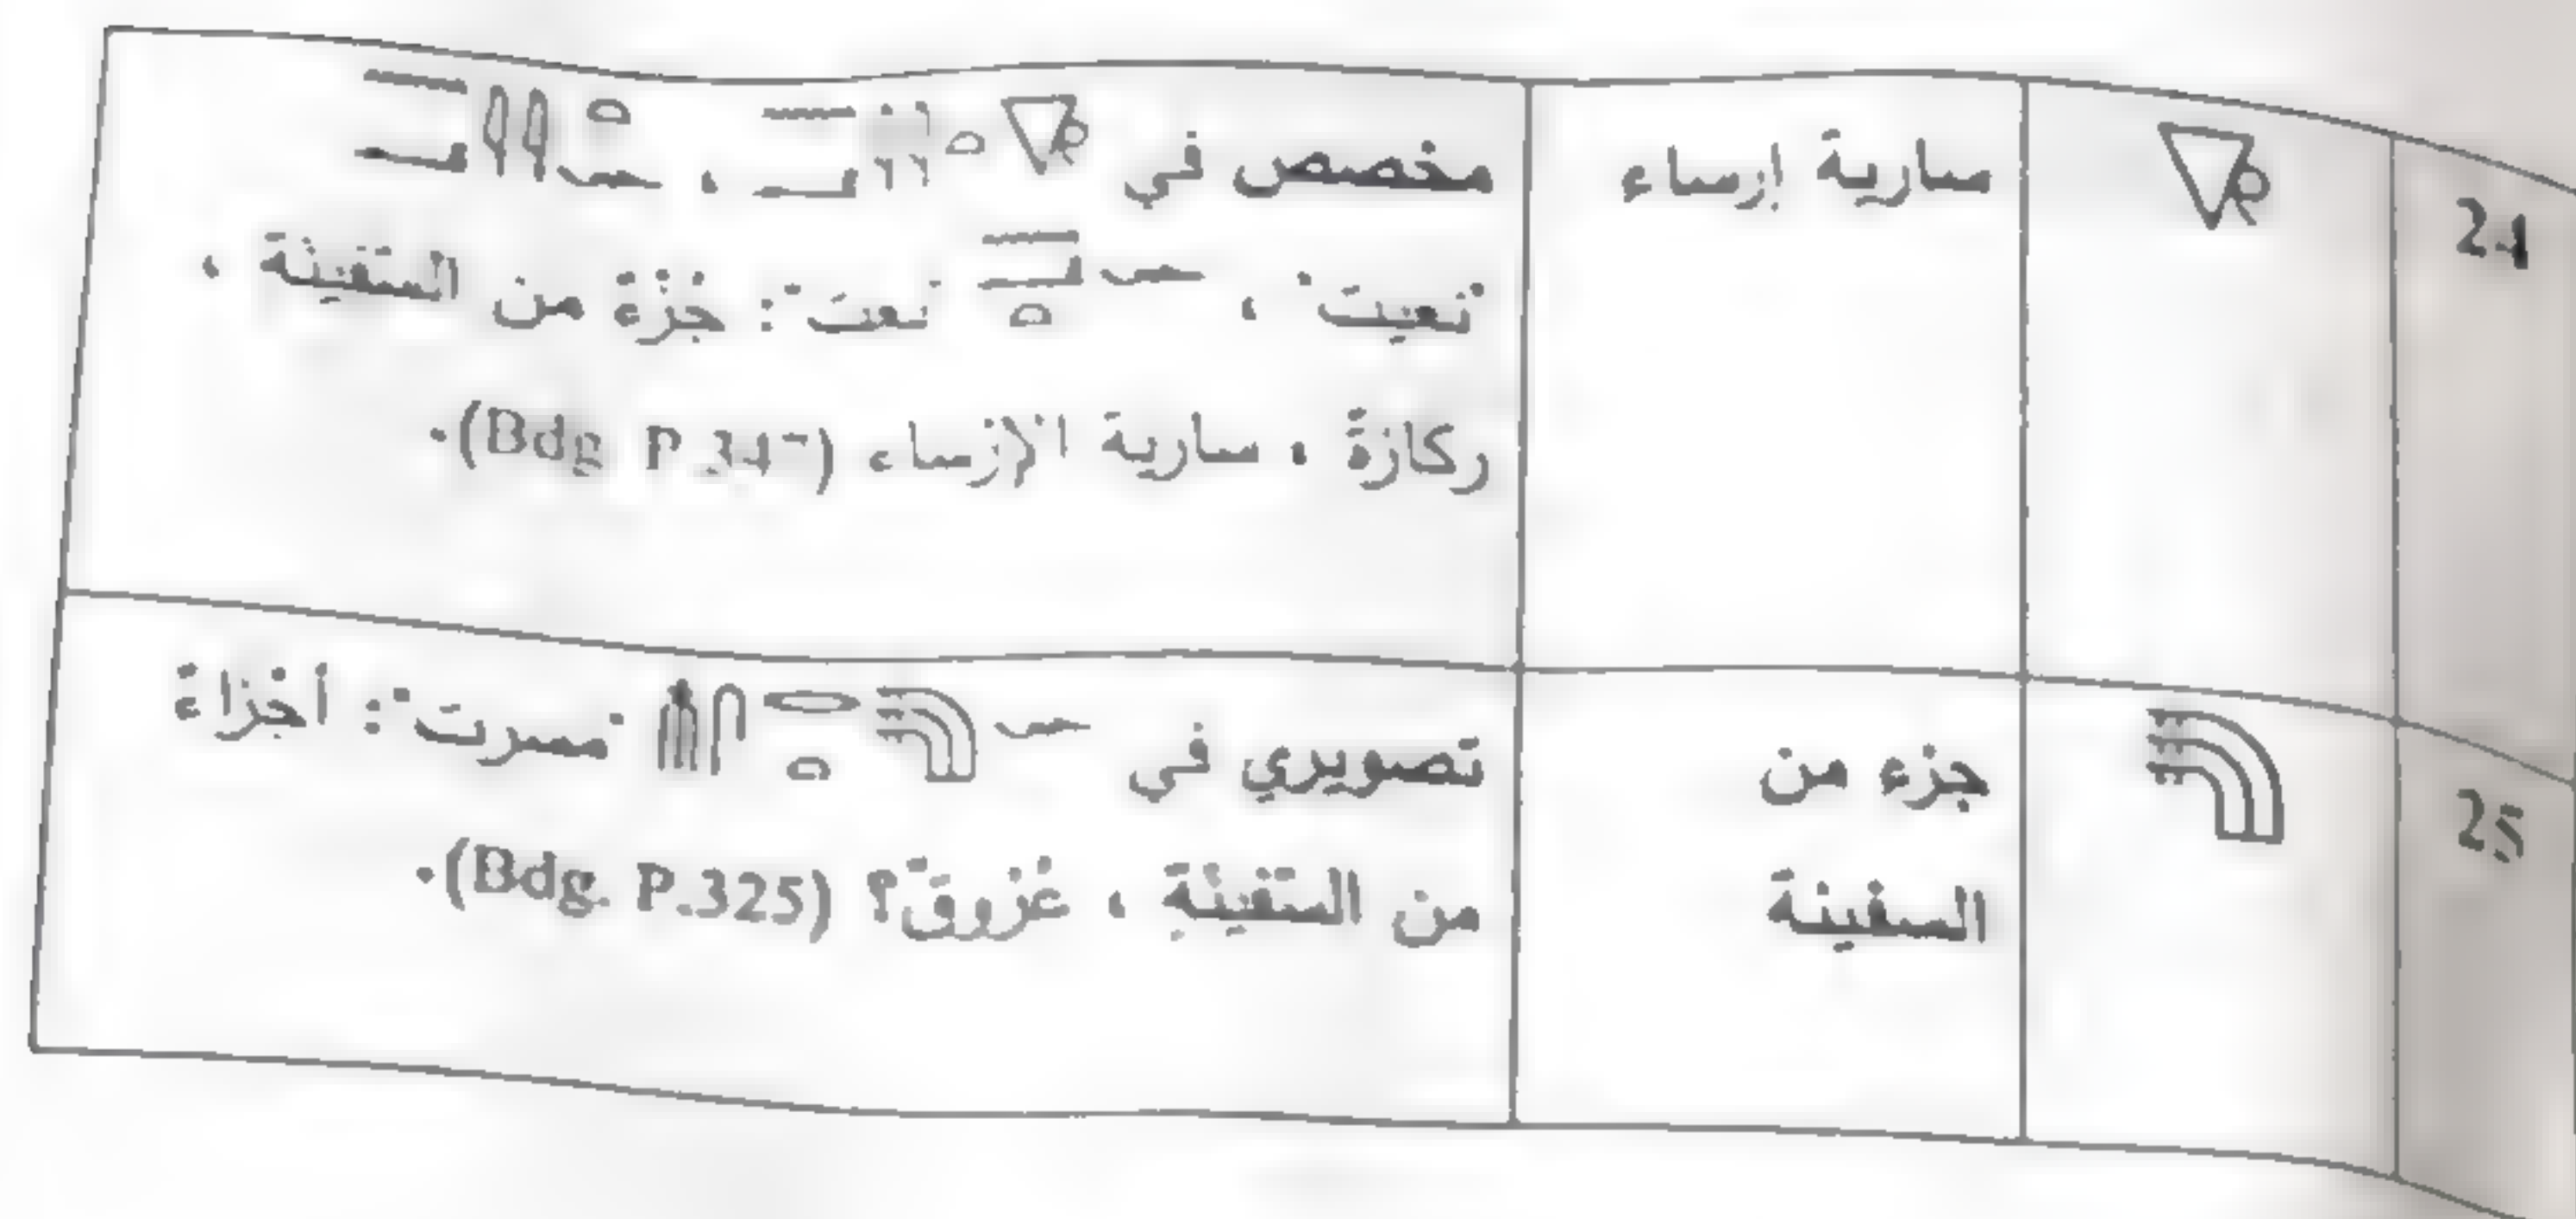 24
سارية إرساء
مخصص في ،
"نعيت" ، "نعت": جُزْءٌ من السَّفينة ،
ركازةٌ ، سارية الإرساء (Bdg. P.347).
25
جزء من
السفينة
تصويري في "مسرت": أجْزاءٌ
من السَّفينةِ ، عُرُوقٌ؟ (Bdg. P.325).